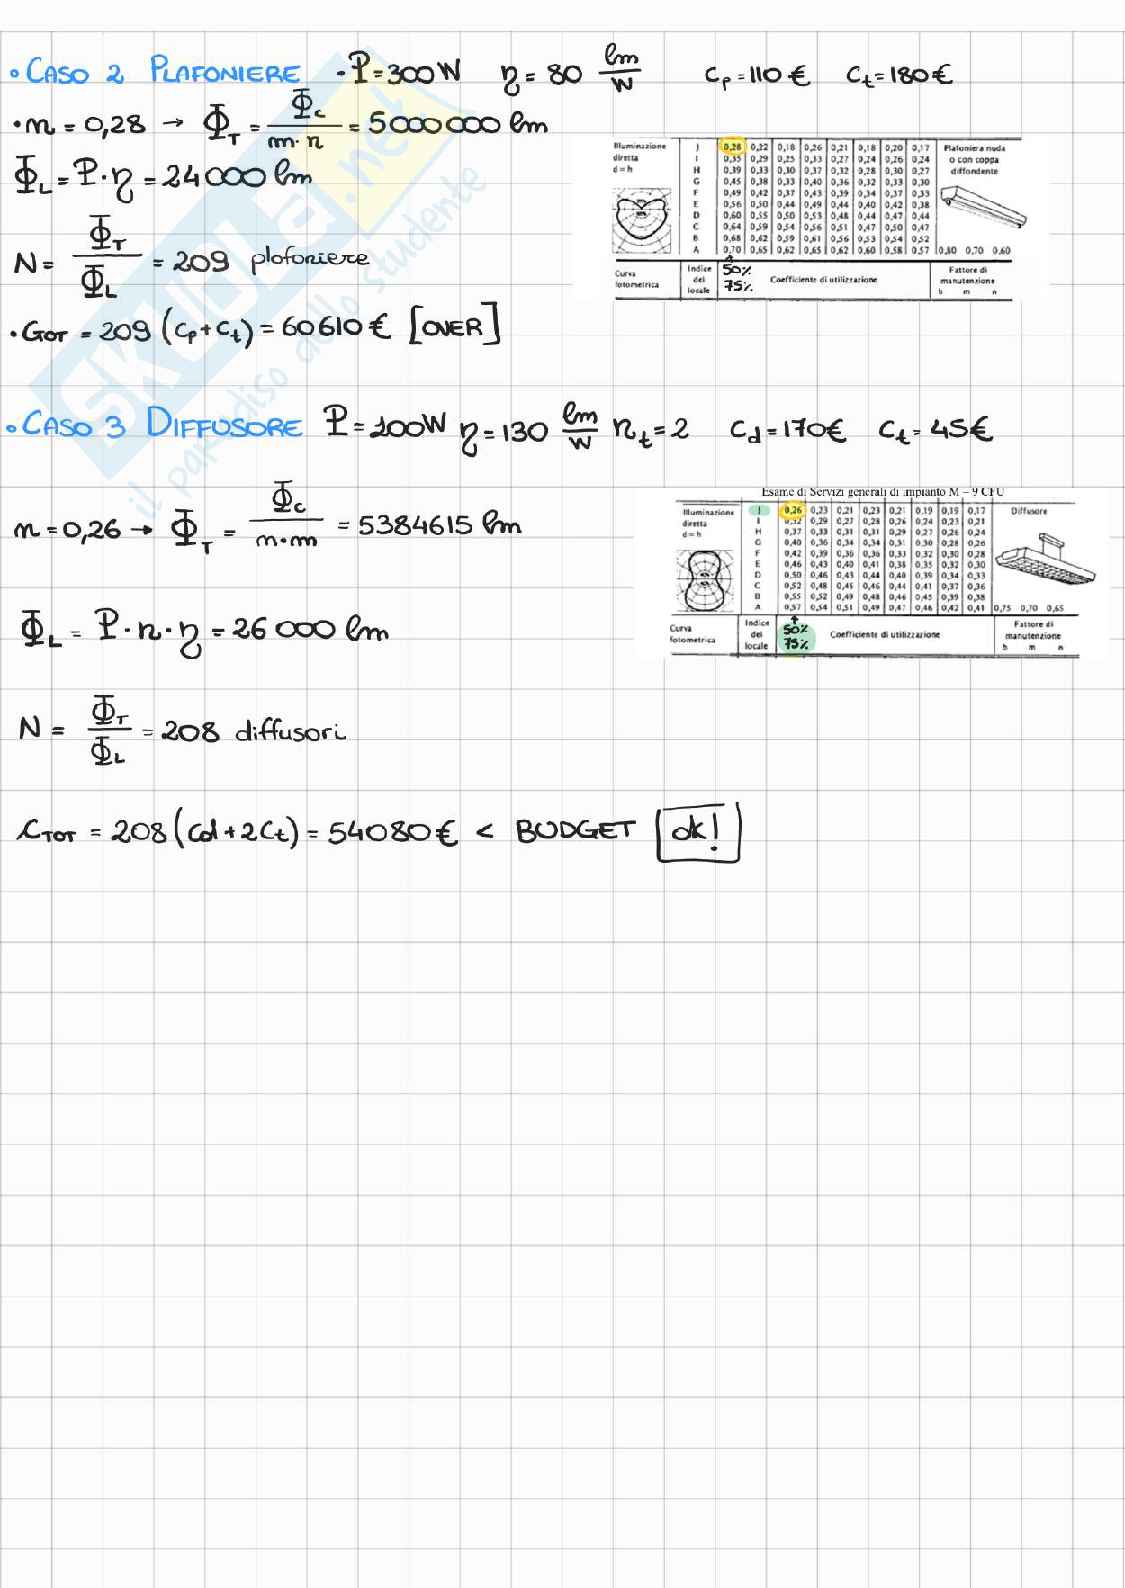 • CASO 2 PLAFONIERE - P = 300 W η = 80 lm/W Cp = 110 € Ct = 180 €
• m = 0,28 → ΦT = Φc / m·n = 5000000 lm
ΦL = P·η = 24000 lm
N = ΦT / ΦL = 209 plafoniere
• CTOT = 209 (Cp + Ct) = 60610 € [OVER]
Illuminazione diretta d=h
J 0,28 0,22 0,18 0,26 0,21 0,18 0,20 0,17 Plafoniera nuda
I 0,35 0,29 0,25 0,33 0,27 0,24 0,26 0,24 o con coppa
H 0,39 0,33 0,30 0,37 0,32 0,28 0,30 0,27 diffondente
G 0,45 0,38 0,33 0,40 0,36 0,32 0,33 0,30
F 0,49 0,42 0,37 0,43 0,39 0,34 0,37 0,33
E 0,56 0,50 0,44 0,49 0,44 0,40 0,42 0,38
D 0,60 0,55 0,50 0,53 0,48 0,44 0,47 0,44
C 0,64 0,59 0,54 0,56 0,51 0,47 0,50 0,47
B 0,68 0,62 0,59 0,61 0,56 0,53 0,54 0,52
A 0,70 0,65 0,62 0,65 0,62 0,60 0,58 0,57 0,80 0,70 0,60
Curva fotometrica Indice del locale 50% 75% Coefficiente di utilizzazione Fattore di manutenzione b m n
• CASO 3 DIFFUSORE P = 100 W η = 130 lm/W nt = 2 Cd = 170 € Ct = 45 €
m = 0,26 → ΦT = Φc / m·m = 5384615 lm
ΦL = P·n·η = 26000 lm
N = ΦT / ΦL = 208 diffusori
CTOT = 208 (Cd + 2Ct) = 54080 € < BUDGET ok!
Esame di Servizi generali di impianto M – 9 CFU
Illuminazione diretta d=h
J 0,26 0,23 0,21 0,23 0,21 0,19 0,19 0,17 Diffusore
I 0,32 0,29 0,27 0,28 0,26 0,24 0,23 0,21
H 0,37 0,33 0,31 0,31 0,29 0,27 0,26 0,24
G 0,40 0,36 0,34 0,34 0,30 0,28 0,26
F 0,42 0,39 0,36 0,36 0,33 0,32 0,30 0,28
E 0,46 0,43 0,40 0,41 0,38 0,35 0,32 0,30
D 0,50 0,46 0,43 0,44 0,40 0,39 0,34 0,33
C 0,52 0,48 0,45 0,46 0,44 0,41 0,37 0,36
B 0,55 0,52 0,49 0,48 0,46 0,45 0,39 0,38
A 0,57 0,54 0,51 0,49 0,47 0,46 0,42 0,41 0,75 0,70 0,65
Curva fotometrica Indice del locale 50% 75% Coefficiente di utilizzazione Fattore di manutenzione b m n
skuola.net
il paradiso dello studente